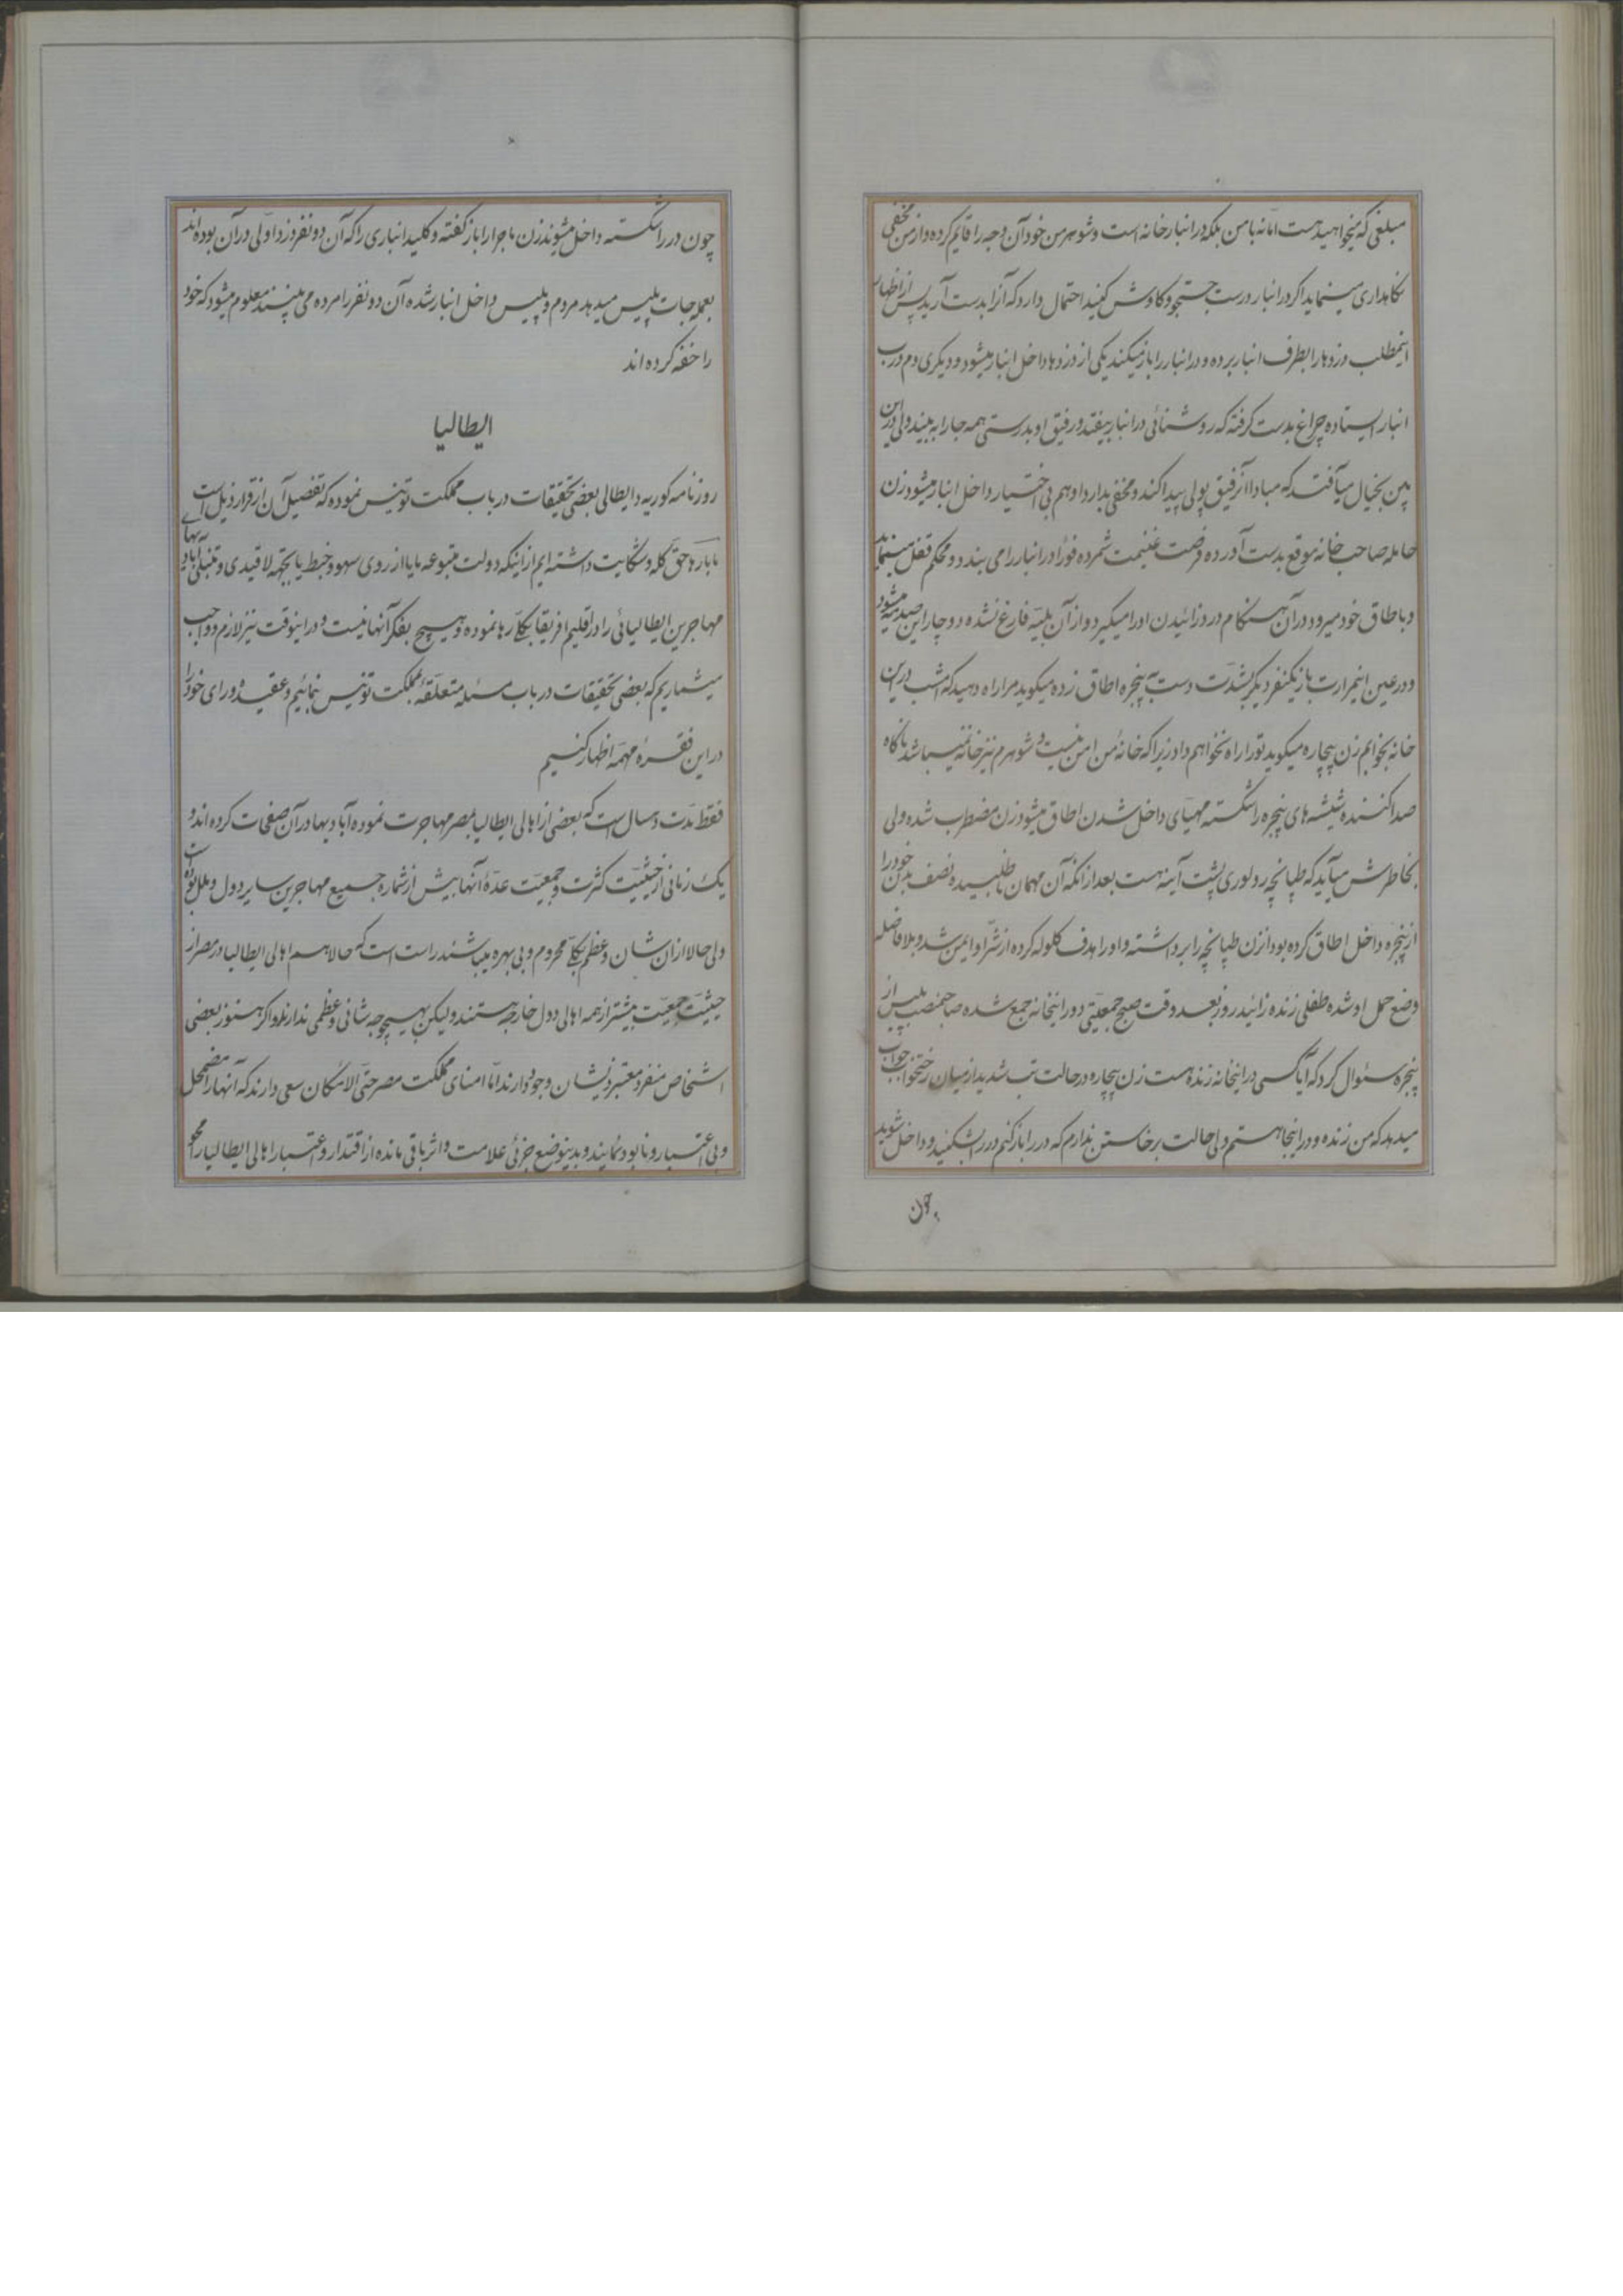 مبلغی که میخواهید هست اما نه با من بلکه در انبار خانه است و شوهر من خود آن وجه را قایم کرده و از من مخفی
نکاهداری مینماید اکر در انبار درست جستجو و کاوش کنید احتمال دارد که آنرا بدست آرید پس از اظهار
اینمطلب دزدها را بطرف انبار برده و در انبار را باز میکند یکی از دزدها داخل انبار میشود و دیکری دم درب
انبار ایستاده چراغ بدست کرفته که روشنائی در انبار بیفتد و رفیق او بدرستی همه جا را به بیند ولی در این
بین بخیال میافتد که مبادا آنرفیق پولی پیدا کند و مخفی بدارد او هم بی اختیار داخل انبار میشود زن
حامله صاحب خانه موقع بدست آورده و فرصت غنیمت شمرده فورا در انبار را می بندد و محکم قفل مینماید
و باطاق خود میرود در آن هنکام درد زائیدن او را میکیرد و از آن بلیه فارغ نشده دوچار این صدمه میشود
و در عین اینمرارت باز یکنفر دیکر بشدت دست به پنجره اطاق زده میکوید مرا راه دهید که امشب در این
خانه بخوابم زن بیچاره میکوید تو را راه نخواهم داد زیرا که خانهٔ من امن نیست و شوهرم نیز خانه نمیباشد ناکاه
صدا کننده شیشه های پنجره را شکسته مهیای داخل شدن اطاق میشود زن مضطرب شده ولی
بخاطرش میآید که طپانچه ردلوری پشت آینه هست بعد از آنکه آن مهمان ناطلبیده نصف بدن خود را
از پنجره داخل اطاق کرده بود انزن طپانچه را برداشته و او را هدف کلوله کرده از شر او ایمن شد و بلافاصله
وضع حمل او شده طفلی زنده زائید روز بعد وقت صبح جمعیتی دور اینخانه جمع شده صاحبمنصب پلیس از
پنجره سئوال کرد که آیا کسی در اینخانه زنده هست زن بیچاره در حالت تب شدید از میان رختخواب جواب
میدهد که من زنده و در اینجا هستم ولی حالت برخاستن ندارم که در را باز کنم در را بشکنید و داخل شوید
چون
چون در را شکسته داخل میشوند زن ماجرا را باز کفته و کلید انباری را که آن دو نفر دزد اولی در آن بوده اند
بعمله جات پلیس میدهد مردم و پلیس داخل انبار شده آن دو نفر را مرده می بینند معلوم میشود که خود
را خفه کرده اند
ایطالیا
روزنامه کوریه دایطالی بعضی تحقیقات در باب مملکت تونیس نموده که تفصیل آن از قرار ذیل است
ما بارها حق کله و شکایت داشته ایم از اینکه دولت متبوعه ما یا از روی سهو و خبط یا بجهه لاقیدی و تنبلی آبادیهای
مهاجرین ایطالیائی را در اقلیم افریقا بکلی رها نموده و هیچ بفکر آنها نیست و در اینوقت نیز لازم و واجب
میشماریم که بعضی تحقیقات در باب مسئله متعلقهٔ بمملکت تونیس نمائیم و عقیده و رای خود را
در این فقرهٔ مهمه اظهار کنیم
فقط مدت دو سال است که بعضی از اهالی ایطالیا بمصر مهاجرت نموده آبادیها در آن صفحات کرده اند و
یک زمانی از حیثیت کثرت و جمعیت عدهٔ آنها بیش از شماره جمیع مهاجرین سایر دول و ملل بوده است
ولی حالا از ان شان و عظم بکلی محروم و بی بهره میباشند راست است که حالا هم اهالی ایطالیا در مصر از
حیثیت جمعیت بیشتر از همه اهالی دول خارجه هستند و لیکن بهیچوجه شانی و عظمی ندارند و اکر هنوز بعضی
اشخاص منفرد معتبر ذیشان وجود دارند اما امنای مملکت مصر حتی الامکان سعی دارند که آنها را مضمحل
و بی اعتبار و نابود نمایند و بدینوضع جزئی علامت و اثر باقی مانده از اقتدار و اعتبار اهالی ایطالیا را محو